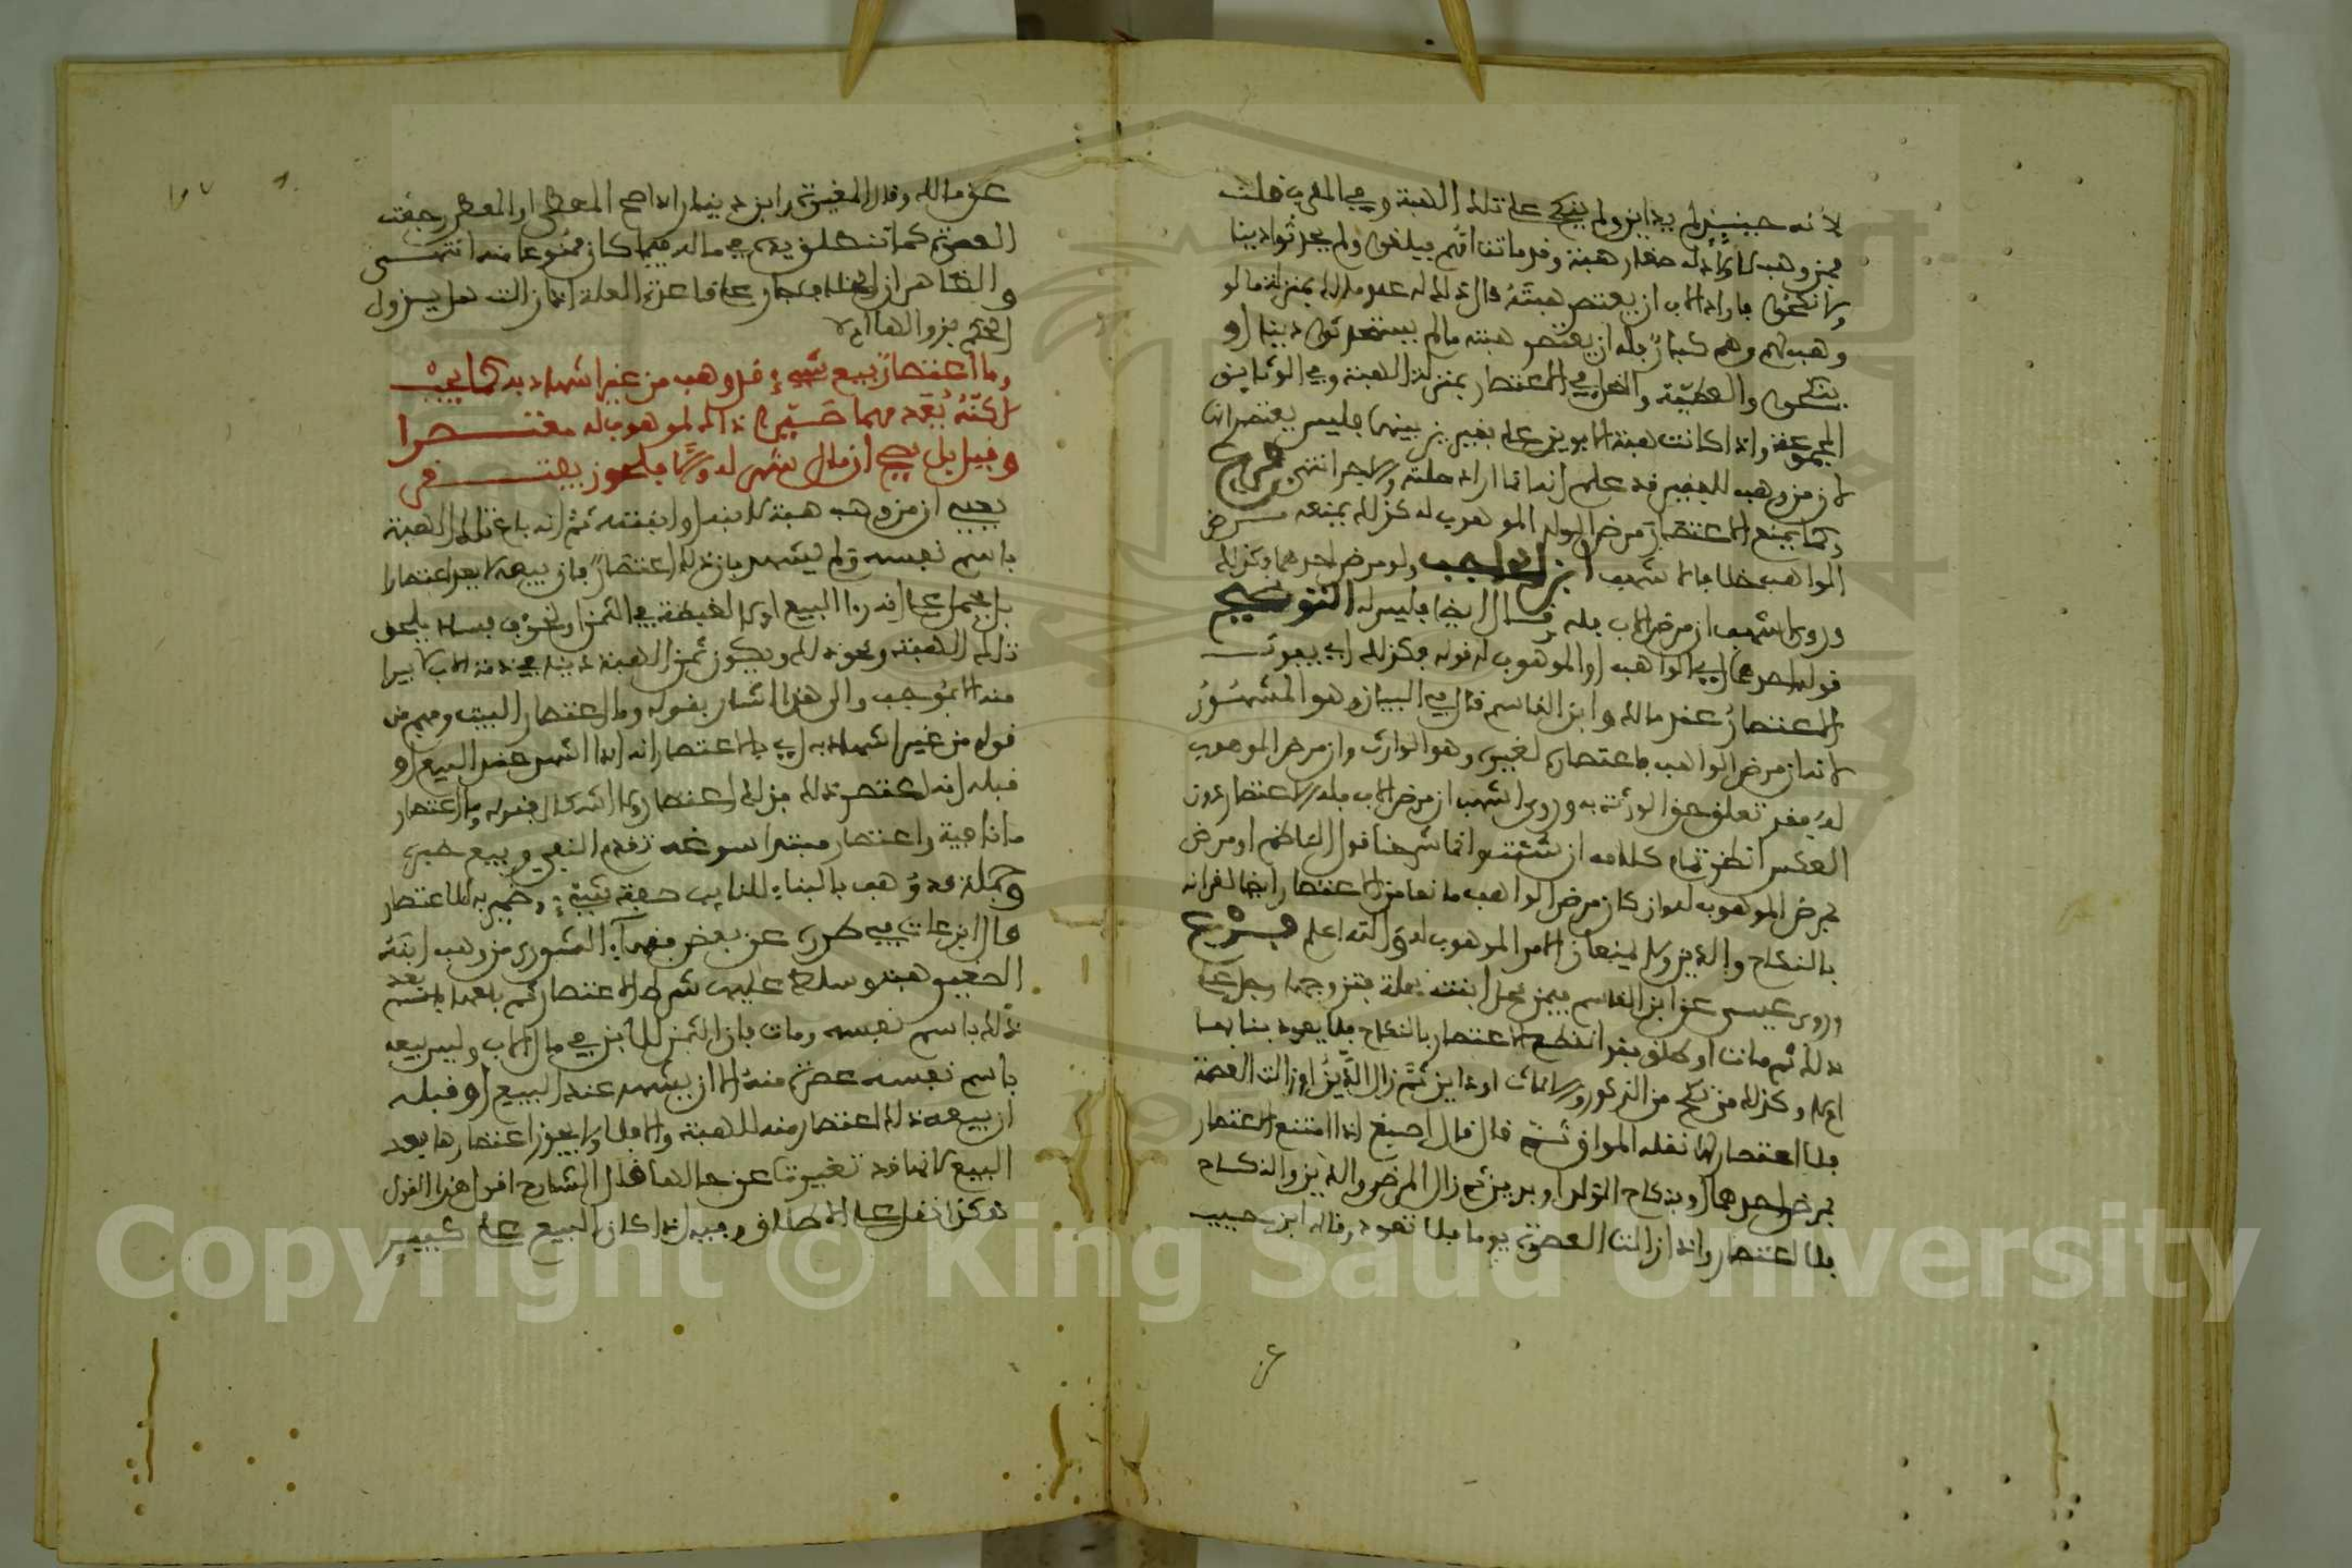 لأنه حينئذ لم يداين ولم ينكح على تلك الهبة وفي المفيد قلت
فمن وهب لأولاده صغار هبة وقد ماتت أمهم فبلغوا ولم يحدثوا دينا
ولا نكحوا فأراد الاب ان يعتصر هبته قال ذلك له عند مالك بمنزلة ما لو
وهب لهم وهم كبار فله ان يعتصر هبته ما لم يستحدثوا دينا او
ينكحوا والعطية والنحل في الاعتصار بمنزلة الهبة وفي الوثائق
المجموعة واذا كانت هبة الابوين على فقير من بنيهما فليس يعتصرانها
لان من وهب للفقير قد علم انه انما اراد صلته والاجر انتهى فرع
وكما يمنع الاعتصار مرض الولد الموهوب له كذلك يمنعه مرض
الواهب خلافا لاشهب ابن الحاجب ولو مرض احدهما فكذلك
وروى اشهب ان مرض الاب فله وقال ايضا فليس له التوضيح
قوله احدهما اي الواهب او الموهوب له قوله فكذلك اي يفوت
الاعتصار عند مالك وابن القاسم قال في البيان وهو المشهور
لانه ان مرض الواهب فاعتصاره لغيره وهو الوارث وان مرض الموهوب
له فقد تعلق حق الورثة به وروى اشهب ان مرض الاب فله الاعتصار دون
العكس انظر تمام كلامه ان شئت وانما شرحنا قول الناظم او مرض
بمرض الموهوب له وان كان مرض الواهب مانعا من الاعتصار ايضا لقرانه
بالنكاح والدين ولا يمنعان الا من الموهوب له والله اعلم فرع
وروى عيسى عن ابن القاسم فيمن نحل ابنته نحلة فتزوجها رجل على
ذلك ثم مات او طلق فقد انقطع الاعتصار بالنكاح فلا يعود بنى بها
او لا وكذلك من نكح من الذكور والاناث او داين ثم زال الدين او زالت العصمة
فلا اعتصار لها نقله المواق ثم قال قال اصبغ اذا امتنع الاعتصار
بمرض احدهما او بنكاح الولد او بدين ثم زال المرض والدين والنكاح
فلا اعتصار واذا زالت العصرة يوما فلا تعود وقاله ابن حبيب
عن مالك وقال المغيرة وابن دينار اذا صح المعطى او المعطي رجعت
العصرة كما تنطلق يده في ماله فيما كان ممنوعا منه انتهى
والظاهر ان الخلاف جار على قاعدة العلة اذا زالت هل يزول
الحكم بزوالها ام لا
وما اعتصارٌ بيع شيء قد وهب من غير اشهاد به كما يجب
لكنه يعد مهما صيره ذاك لموهوب له معتصرا
وقيل بل يصح ان مال شهر له وإلا فلحوز يفتقر
يعني ان من وهب هبة لابنه او ابنته ثم انه باع تلك الهبة
باسم نفسه ولم يشهد بان ذلك اعتصار فان بيعه لا يعد اعتصارا
بل يحمل على انه رأى البيع اولى لغبطة في الثمن او لخوف فساد يلحق
تلك الهبة ونحو ذلك ويكون ثمن الهبة دينا في ذمة الاب لا يبرا
منه الا بموجب والى هذا اشار بقوله وما اعتصار البيت ومفهوم
قوله من غير اشهاد به اي بالاعتصار انه اذا اشهد عند البيع او
قبله انه اعتصر ذلك فذلك اعتصار والى ذلك اشار بقوله وما اعتصار
ما نافية واعتصار مبتدا سوغه تقدم النفي وبيع خبره
وجملة قد وهب بالبناء للنائب صفة شيء وضمير به للاعتصار
قال ابن عات في طرره عن بعض فقهاء الشورى من وهب ابنه
الصغير هبة وسلط عليه شرط الاعتصار ثم باعها بعد
ذلك باسم نفسه ومات فان الثمن للابن في مال الاب وليس بيعه
باسم نفسه عصرة منه الا ان يشهد عند البيع او قبله
ان بيعه ذلك اعتصار منه للهبة والا فلا ولا يجوز اعتصارها بعد
البيع لانها قد تغيرت عن حالها قال الشارح اقول هذا القول
هكذا نقل على الاطلاق وفيه اذا كان البيع على كبير